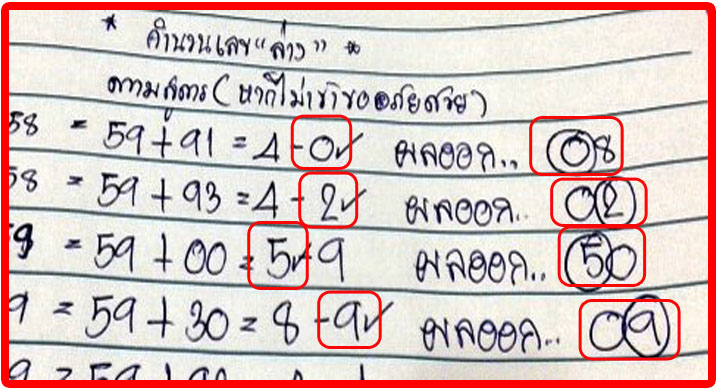 * คำนวนเลข "ล่าง" *
ตามสูตร (หากไม่เข้าขออภัยด้วย)
58 = 59 + 91 = 4 - 0 ✓ ผลออก.. 08
58 = 59 + 93 = 4 - 2 ✓ ผลออก.. 02
59 = 59 + 00 = 5 ✓ 9 ผลออก.. 50
9 = 59 + 30 = 8 - 9 ✓ ผลออก.. 09